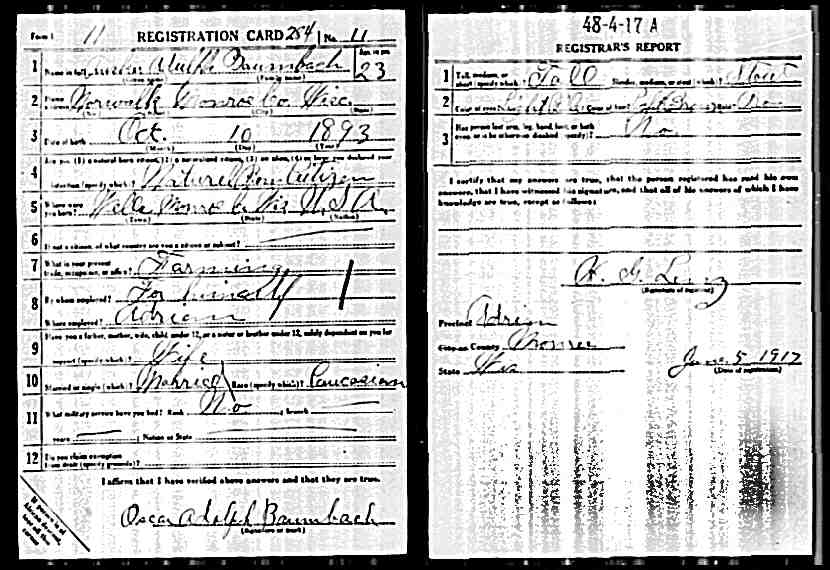 Form 1 11 REGISTRATION CARD 254 No. 11
1 Name in full Adolph Baumbach Age, in yrs 23
(Given name) (Family name)
2 Home Norwalk Monroe Co Wisc
(No.) (City) (State)
3 Date of birth Oct. 10 1893
(Month) (Day) (Year)
4 Are you (1) a natural born citizen, (2) a naturalized citizen, (3) an alien, (4) or have you declared your
intention (specify which)? Natural Born Citizen
5 Where were you born? Wells Monroe Co Wis U.S.A.
(Town) (State) (Nation)
6 If not a citizen, of what country are you a citizen or subject?
7 What is your present trade, occupation, or office? Farming
8 By whom employed? For himself
Where employed? Adrian
9 Have you a father, mother, wife, child under 12, or a sister or brother under 12, solely dependent on you for
support (specify which)? Wife
10 Married or single (which)? Married Race (specify which)? Caucasian
11 What military service have you had? Rank No ; branch
years ; Nation or State
12 Do you claim exemption from draft (specify grounds)?
I affirm that I have verified above answers and that they are true.
Oscar Adolph Baumbach
(Signature or mark)
If person is of African descent, tear off this corner
48-4-17 A
REGISTRAR'S REPORT
1 Tall, medium, or short (specify which)? Tall Slender, medium, or stout (which)? Stout
2 Color of eyes? Light Blue Color of hair? Brown Bald?
3 Has person lost arm, leg, hand, foot, or both eyes, or is he otherwise disabled (specify)? No
I certify that my answers are true, that the person registered has read his own
answers, that I have witnessed his signature, and that all of his answers of which I have
knowledge are true, except as follows:
H. G.
(Signature of registrar)
Precinct Adrian
City or County Monroe
State Wis
June 5 1917
(Date of registration)